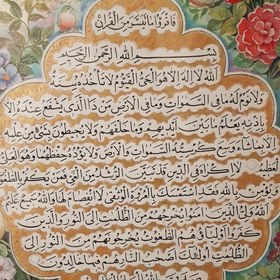 فاقرؤا ما تيسر من القرآن
بسم الله الرحمن الرحيم
الله لا إله إلا هو الحي القيوم لا تأخذه سنة
ولا نوم له ما في السموات وما في الأرض من ذا الذي يشفع عنده إلا
بإذنه يعلم ما بين أيديهم وما خلفهم ولا يحيطون بشيء من علمه
إلا بما شاء وسع كرسيه السموات والأرض ولا يؤده حفظهما وهو العلي
العظيم لا إكراه في الدين قد تبين الرشد من الغي فمن يكفر بالطاغوت
ويؤمن بالله فقد استمسك بالعروة الوثقى لا انفصام لها والله سميع عليم
الله ولي الذين آمنوا يخرجهم من الظلمات إلى النور والذين
كفروا أولياؤهم الطاغوت يخرجونهم من النور إلى
الظلمات أولئك أصحاب النار هم فيها خالدون